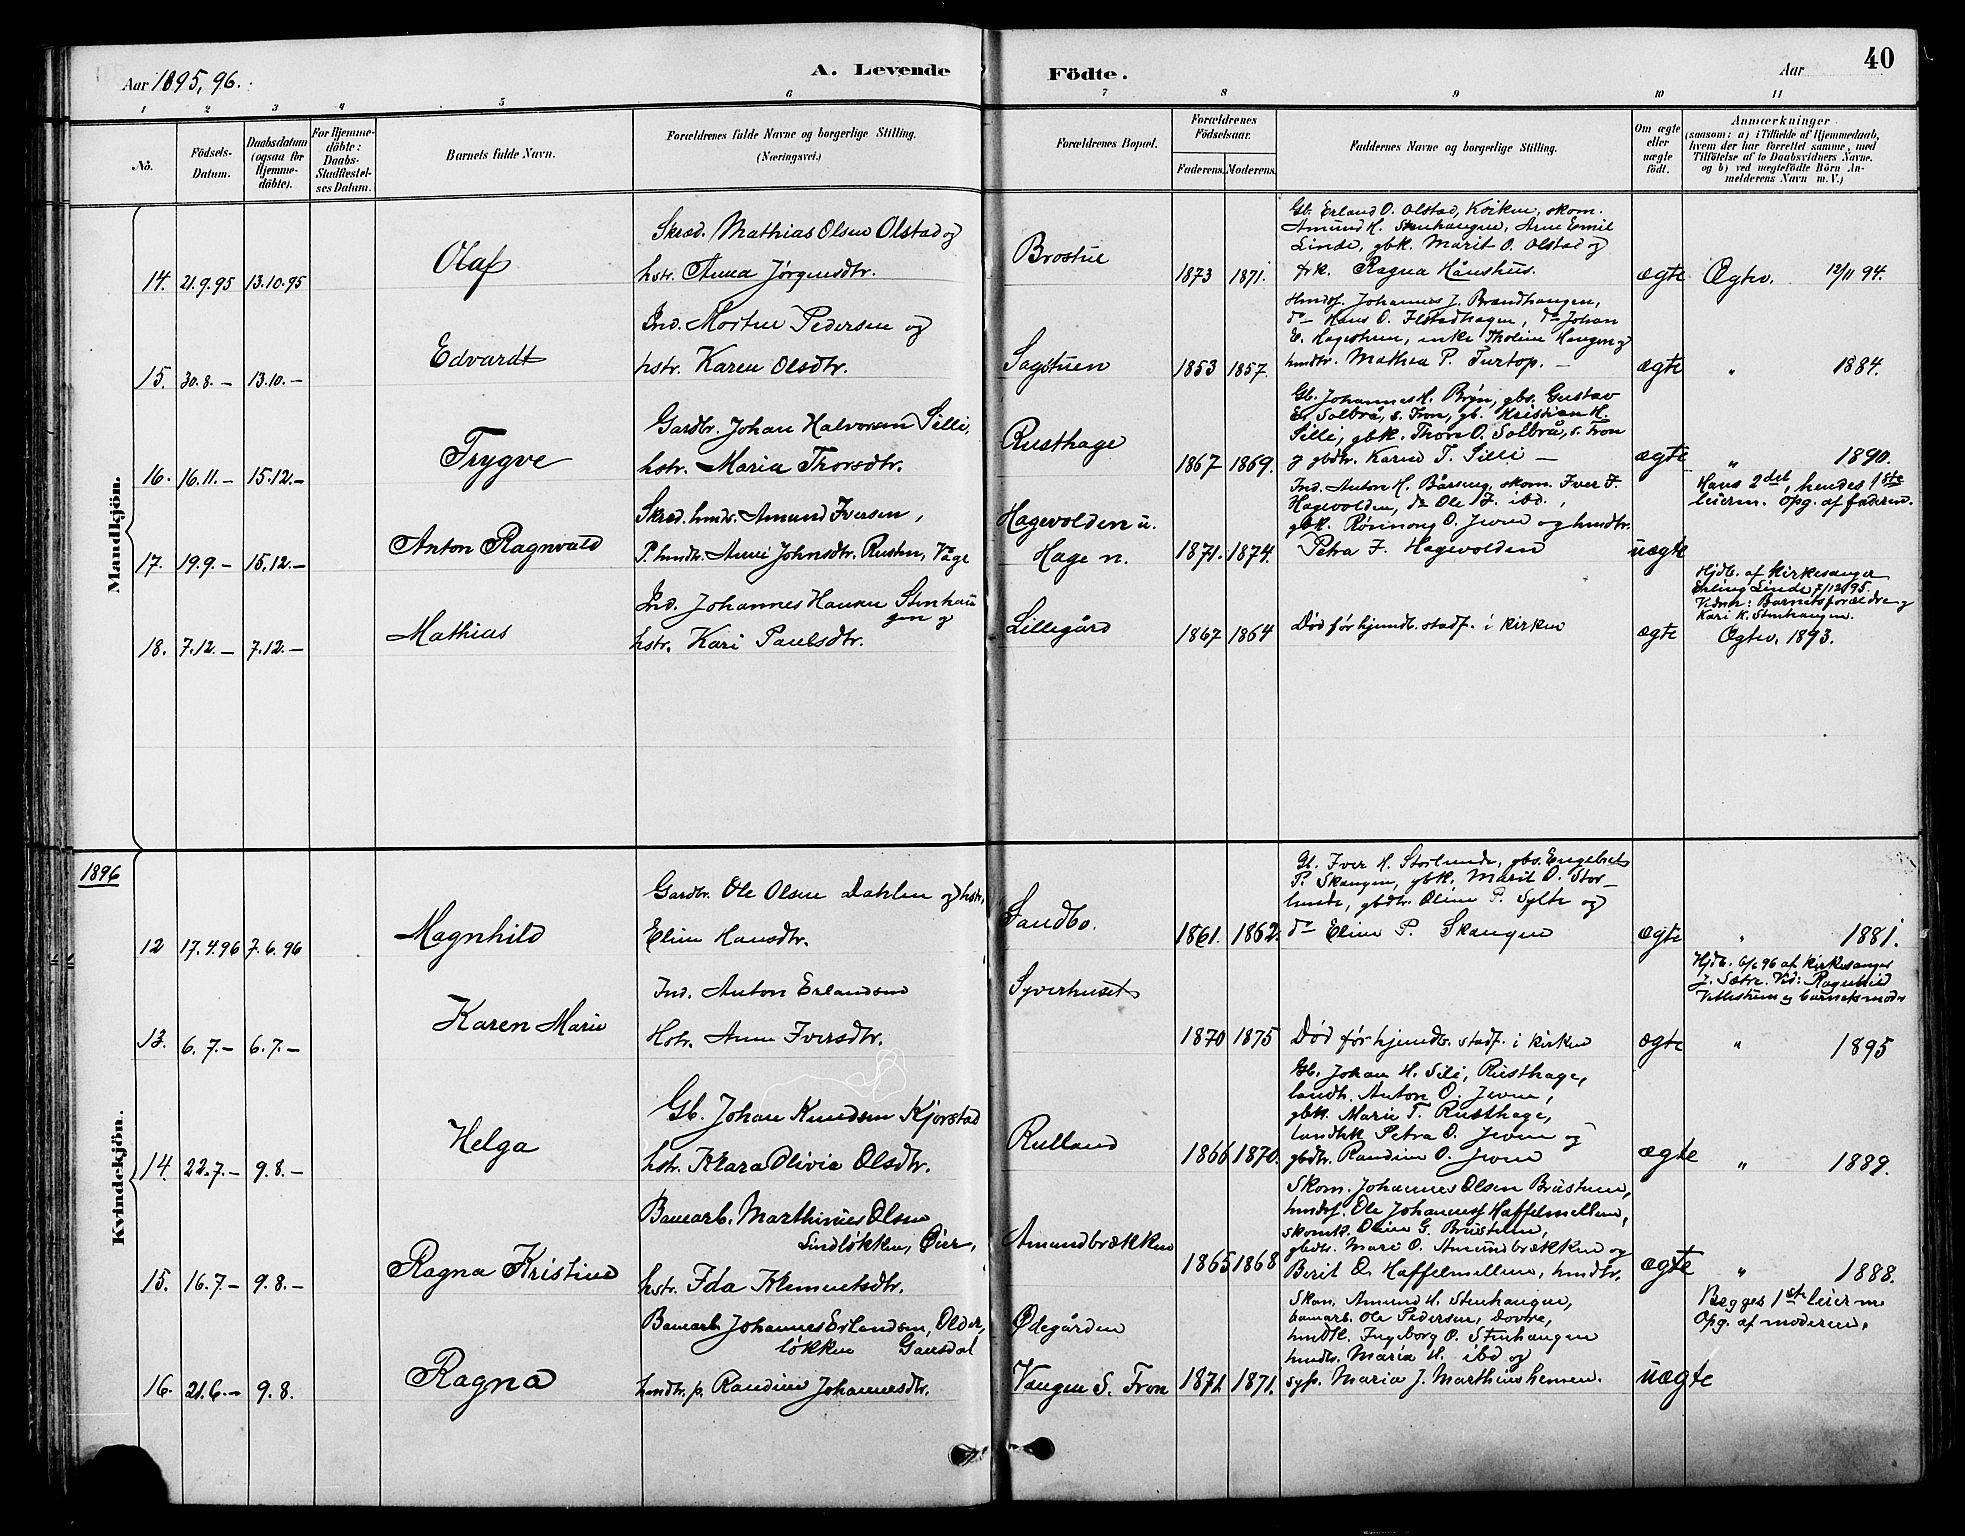 Aar 1895, 96.
A. Levende Födte.
Aar
40
1 2 3 4 5 6 7 8 9 10 11
No.
Födsels-Datum.
Daabsdatum (ogsaa for Hjemme-döbte).
For Hjemme-döbte: Daabs-Stadfæstel-ses Datum.
Barnets fulde Navn.
Forældrenes fulde Navne og borgerlige Stilling. (Næringsvei.)
Forældrenes Bopæl.
Forældrenes Födselsaar.
Faderens. Moderens.
Faddernes Navne og borgerlige Stilling.
Om ægte eller uægte født.
Anmærkninger
(saasom: a) i Tilfælde af Hjemmedaab, hvem der har forrettet samme, med Tilföielse af to Daabsvidners Navne. og b) ved uegtefödte Börn An-melderens Navn m. V.)
Mandkjön.
14. 21.9.95 13.10.95
Olaf
Skræd. Mathias Olsen Olstad og
hstr. Anna Jørgensdtr.
Brostue
1873 1871.
Gb. Erland O. Olstad, Kviken, skom.
Amund H. Stenhaugen, Arne Emil
Linde, gbk. Marit O. Olstad og
frk. Ragna Hånshus.
ægte
Ægtev. 12/11 94.
15. 30.8.– 13.10.–
Edvardt
Ind. Morten Pedersen og
hstr. Karen Olsdtr.
Sagstuen
1853 1857.
Hmdsf. Johannes J. Brændhaugen,
do Hans O. Ilstadhagen, do Johan
E. Hagestuen, enke Tholine Haugen og
hmdtr. Mathea P. Turtop. –
ægte
" 1884.
16. 16.11.– 15.12.–
Trygve
Gardbr. Johan Halvorsen Silli,
hstr. Maria Thorsdtr.
Rusthage
1867 1869.
Gb. Johannes H. Bryn, gbs. Gustav
E. Solbrå, s. Fron, gb. Kristian H.
Silli, gbk. Thore O. Solbrå, s. Fron
og gbdtr. Karen T. Silli –
ægte
" 1890.
17. 19.9.– 15.12.–
Anton Ragnvald
Skræd. hmds. Amund Iversen,
P. hmdtr. Anne Johnsdtr. Rusten, Våge
Hagevolden u.
Hage n.
1871. 1874.
Ind. Anton H. Bårseng, skom. Iver I.
Hagevolden, do Ole I. ibd.,
gbk. Rønnoug O. Jevne og hmdtr.
Petra I. Hagevolden
uægte
Hans 2det, hendes 1ste
leierm. Opg. af faderen.
18. 7.12.– 7.12.–
Mathias
Ind. Johannes Hansen Stenhau
gen og
hstr. Kari Paulsdtr.
Lillegård
1867 1864
Død før hjemdb. stadf. i kirken
ægte
Hjdb. af kirkesanger
Erling Linde 7/12 95.
Vidnh: Barnets forældre og
Kari K. Stenhaugen.
Ægtev. 1893.
1896
Kvindekjön.
12 17.4.96 7.6.96
Magnhild
Gardbr. Ole Olsen Dahlen og hstr.
Eline Hansdtr.
Sandbo.
1861. 1862.
Gb. Iver H. Storlunde, gbs. Engebret
P. Skaugen, gbk. Marit O. Stor-
lunde, gbdtr. Oline P. Sylte og
do Eline P. Skaugen
ægte
" 1881.
13. 6.7.– 6.7.–
Karen Marie
Ind. Anton Erlandsen
Hstr. Anne Iversdtr.
Syverhuset
1870 1875
Død før hjemdb. stadf. i kirken
ægte
Hjdb. 6/6 96 af kirkesanger
J. Sætre. Vid: Ragnhild
Vittestuen og barnets moder
" 1895
14. 22.7.– 9.8.–
Helga
Gb. Johan Knudsen Kjorstad
hstr. Klara Olivia Olsdtr.
Rulland
1866 1870.
Gb. Johan H. Sili, Rusthage,
landh. Anton O. Jevne,
gbk. Marie T. Rusthage,
landhk Petra O. Jevne og
gbdtr. Randine O. Jevne
ægte
" 1889.
15. 16.7.– 9.8.–
Ragna Kristine
Banearb. Marthinus Olsen
Lindløkken, Øier,
hstr. Ida Klemetsdtr.
Amundbrækken
1865 1868
Skom. Johannes Olsen Brustuen,
hmdsf. Ole Johannesf Haffelmellem,
skomk. Oline G. Brustuen,
gbdtr. Mari O. Amundbrækken og
Berit O. Haffelmellem, hmdtr.
ægte
" 1888.
16. 21.6.– 9.8.
Ragna
Banearb. Johannes Erlandsen, Older,
løkken Gausdal
hmdtr. p. Randine Johannesdtr.
Ødegården
Vangen S. Fron
1871 1871.
Skom. Amund H. Stenhaugen,
banarb. Ole Pedersen, Dovre,
hmdtl. Ingeborg O. Stenhaugen
hmdtr. Maria H. ibd og
syp. Maria J. Marthinshemen.
uægte
Begges 1ste leierm
Opg. af moderen.